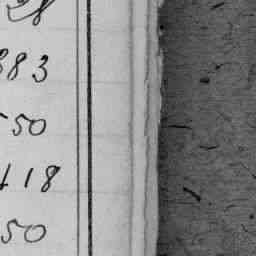 28
383
50
418
50